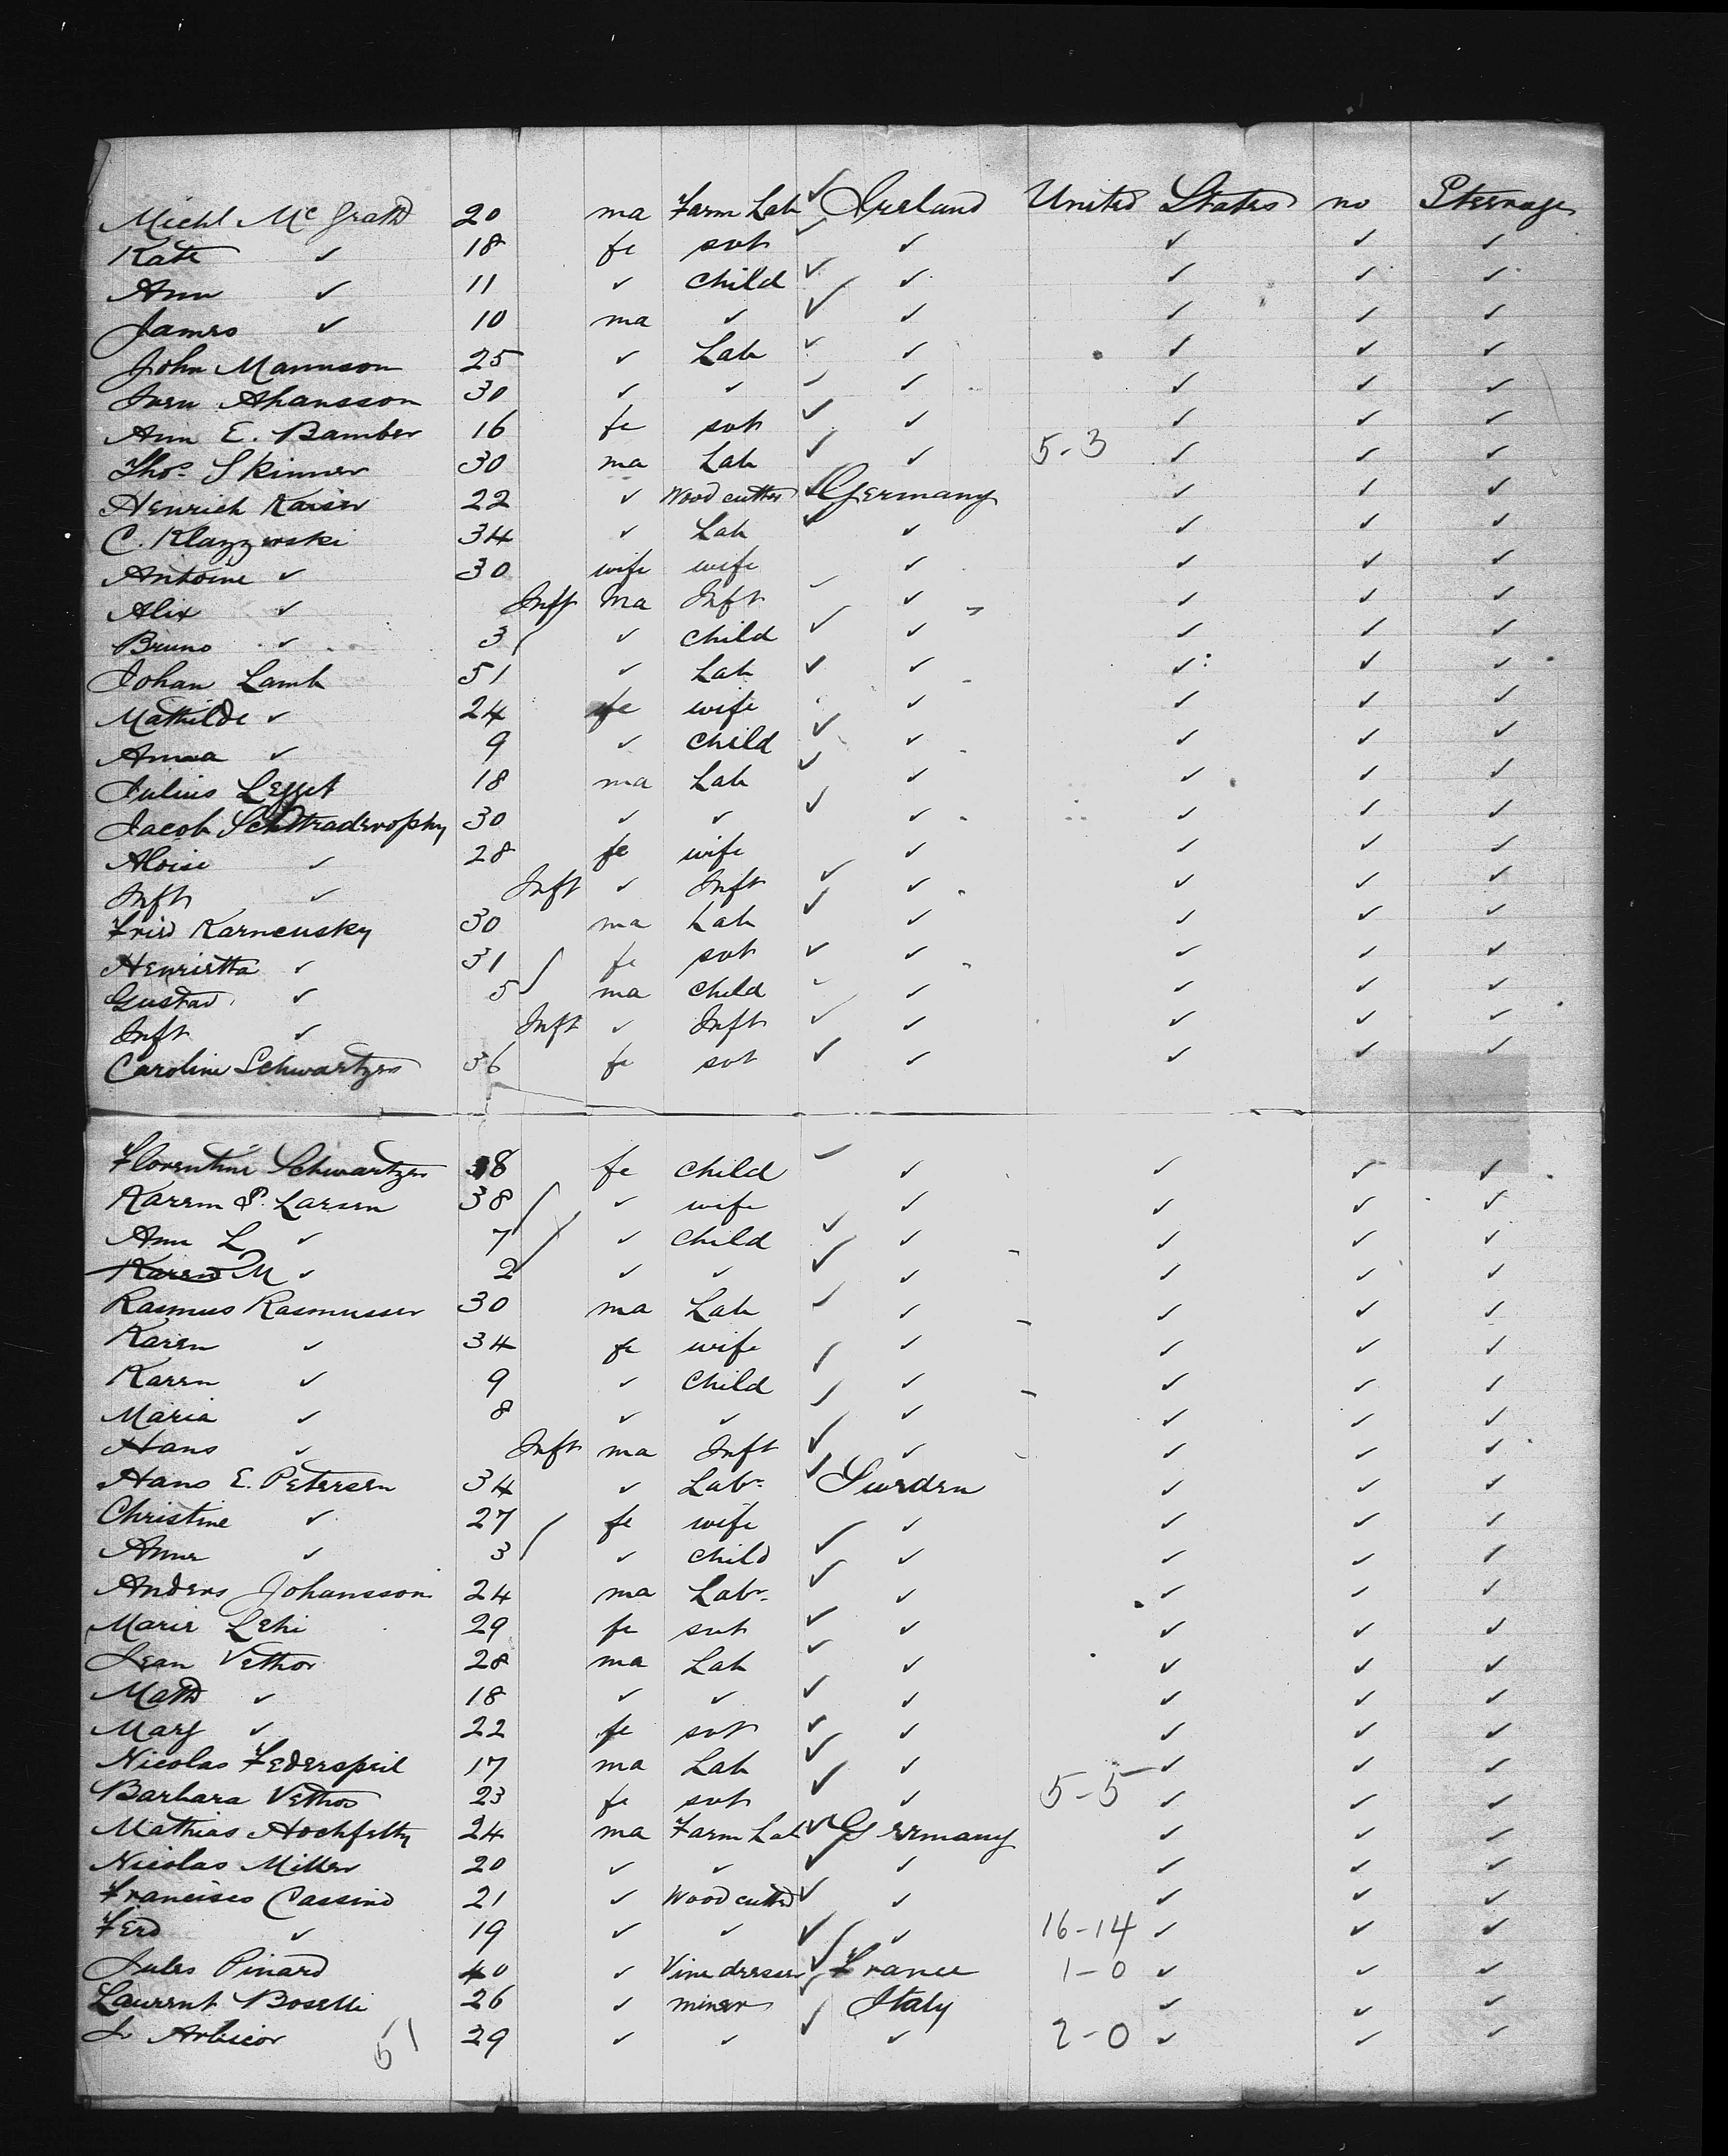 Michl McGrath 20 ma Farm Lab ✓ Ireland United States no Steerage
Kate ✓ 18 fe svt ✓ ✓ ✓ ✓ ✓
Ann ✓ 11 ✓ child ✓ ✓ ✓ ✓ ✓
James ✓ 10 ma ✓ ✓ ✓ ✓ ✓ ✓
John Mannson 25 ✓ Lab ✓ ✓ ✓ ✓ ✓
30 ✓ ✓ ✓ ✓ ✓ ✓ ✓
Ann E. Bamber 16 fe svt ✓ ✓ ✓ ✓ ✓
Thos Skinner 30 ma Lab ✓ ✓ 5-3 ✓ ✓ ✓
Henrich Kaiser 22 ✓ Wood cutter ✓ Germany ✓ ✓ ✓
C. Klazzewski 34 ✓ Lab ✓ ✓ ✓ ✓ ✓
Antoine ✓ 30 wife wife ✓ ✓ ✓ ✓
Alix ✓ Inft ma Inft ✓ ✓ ✓ ✓ ✓
Bruno ✓ 3 ✓ child ✓ ✓ ✓ ✓ ✓
Johan Lamb 51 ✓ Lab ✓ ✓ ✓ ✓ ✓
Mathilde ✓ 24 fe wife ✓ ✓ ✓ ✓
Anna ✓ 9 ✓ child ✓ ✓ ✓ ✓ ✓
Julius 18 ma Lab ✓ ✓ ✓ ✓ ✓
Jacob 30 ✓ ✓ ✓ ✓ ✓ ✓ ✓
Aloise ✓ 28 fe wife ✓ ✓ ✓ ✓
Inft ✓ Inft ✓ Inft ✓ ✓ ✓ ✓ ✓
Fried Karneusky 30 ma Lab ✓ ✓ ✓ ✓ ✓
Henrietta ✓ 31 fe svt ✓ ✓ ✓ ✓ ✓
Gustav ✓ 5 ma child ✓ ✓ ✓ ✓ ✓
Inft ✓ Inft ✓ Inft ✓ ✓ ✓ ✓ ✓
Caroline Schwartzer 36 fe svt ✓ ✓ ✓ ✓ ✓
Florentine Schwartzer 8 fe child ✓ ✓ ✓ ✓ ✓
Karen P. Larsen 38 ✓ wife ✓ ✓ ✓ ✓
Ann L ✓ 7 ✓ child ✓ ✓ ✓ ✓ ✓
Karen M ✓ 2 ✓ ✓ ✓ ✓ ✓ ✓ ✓
Rasmus Rasmussen 30 ma Lab ✓ ✓ ✓ ✓ ✓
Karen ✓ 34 fe wife ✓ ✓ ✓ ✓ ✓
Karen ✓ 9 ✓ child ✓ ✓ ✓ ✓ ✓
Maria ✓ 8 ✓ ✓ ✓ ✓ ✓ ✓ ✓
Hans ✓ Inft ma Inft ✓ ✓ ✓ ✓ ✓
Hans E. Petersen 34 ✓ Labr ✓ Sweden ✓ ✓ ✓
Christine ✓ 27 fe wife ✓ ✓ ✓ ✓
Anna ✓ 3 ✓ child ✓ ✓ ✓ ✓ ✓
Anders Johansson 24 ma Labr ✓ ✓ ✓ ✓ ✓
Marie Lehi 29 fe svt ✓ ✓ ✓ ✓ ✓
Jean Vethor 28 ma Lab ✓ ✓ ✓ ✓ ✓
Math ✓ 18 ✓ ✓ ✓ ✓ ✓ ✓ ✓
Mary ✓ 22 fe svt ✓ ✓ ✓ ✓ ✓
Nicolas Federspiel 17 ma Lab ✓ ✓ ✓ ✓ ✓
Barbara Vethor 23 fe svt ✓ ✓ 5-5 ✓ ✓ ✓
Mathias 24 ma Farm Lab ✓ Germany ✓ ✓ ✓
Nicolas Miller 20 ✓ ✓ ✓ ✓ ✓ ✓ ✓
Francisco Cassino 21 ✓ Wood cutter ✓ ✓ ✓ ✓ ✓
Ferd ✓ 19 ✓ ✓ ✓ ✓ 16-14 ✓ ✓ ✓
Jules Pinard 40 ✓ Vine dresser ✓ France 1-0 ✓ ✓ ✓
Laurent Boselli 26 ✓ miner ✓ Italy ✓ ✓ ✓
51 29 ✓ ✓ ✓ ✓ 2-0 ✓ ✓ ✓